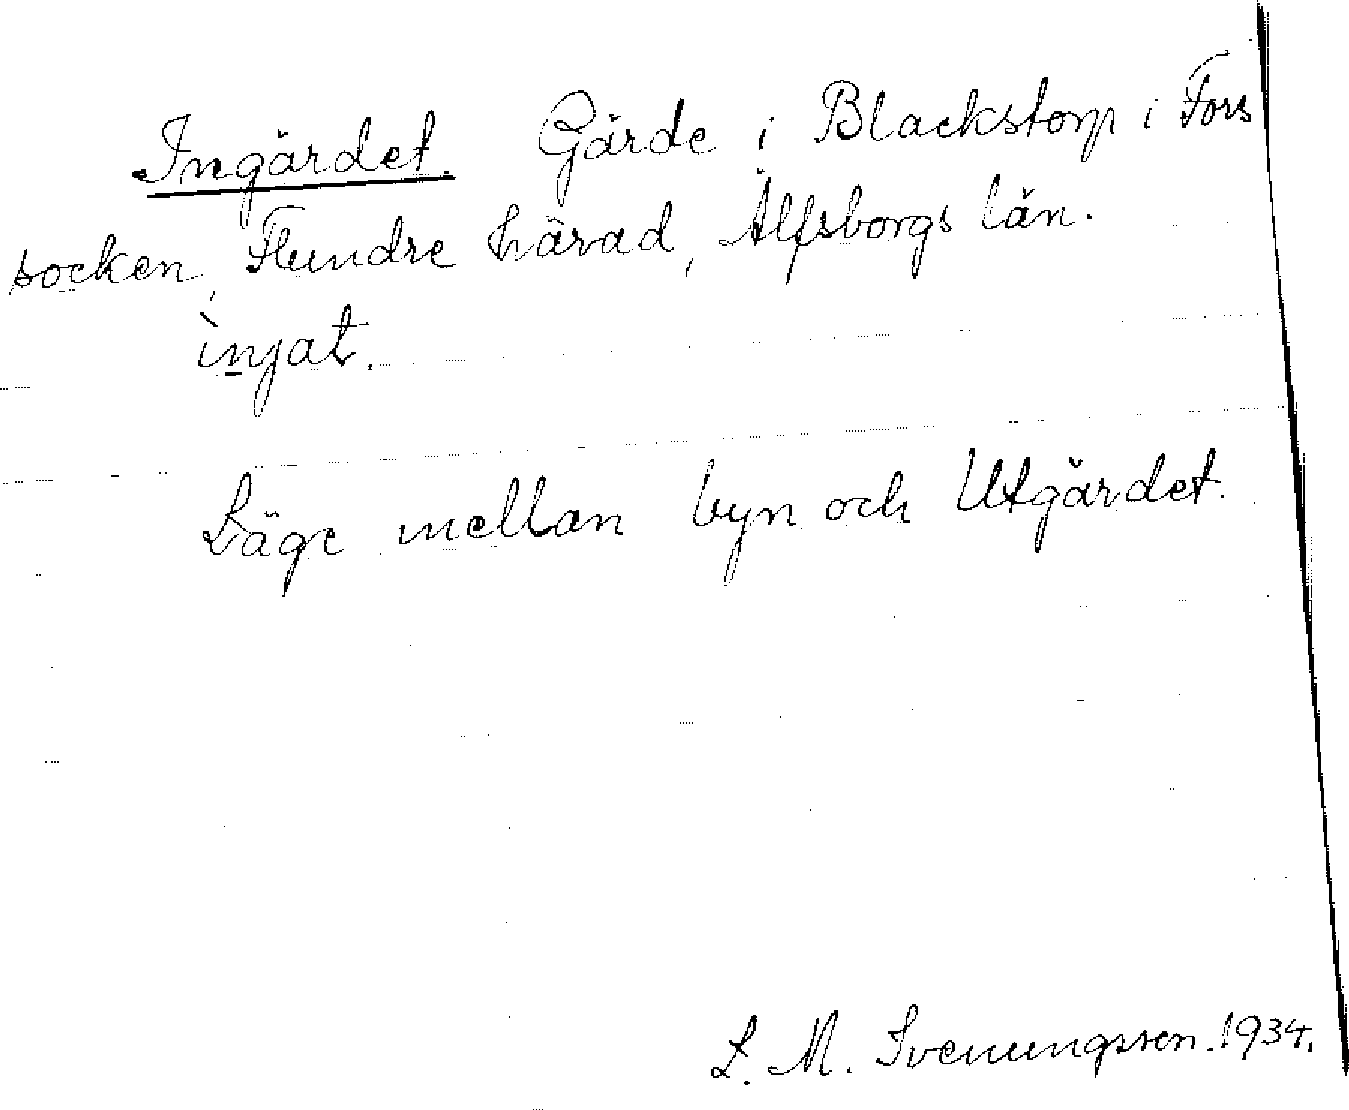 Ingärdet. Gärde i Blackstorp i Fors
socken, Flundre härad, Älfsborgs län.
ìnjat.
Läge mellan byn och Utgärdet.
L. M. Svenungsson. 1934.